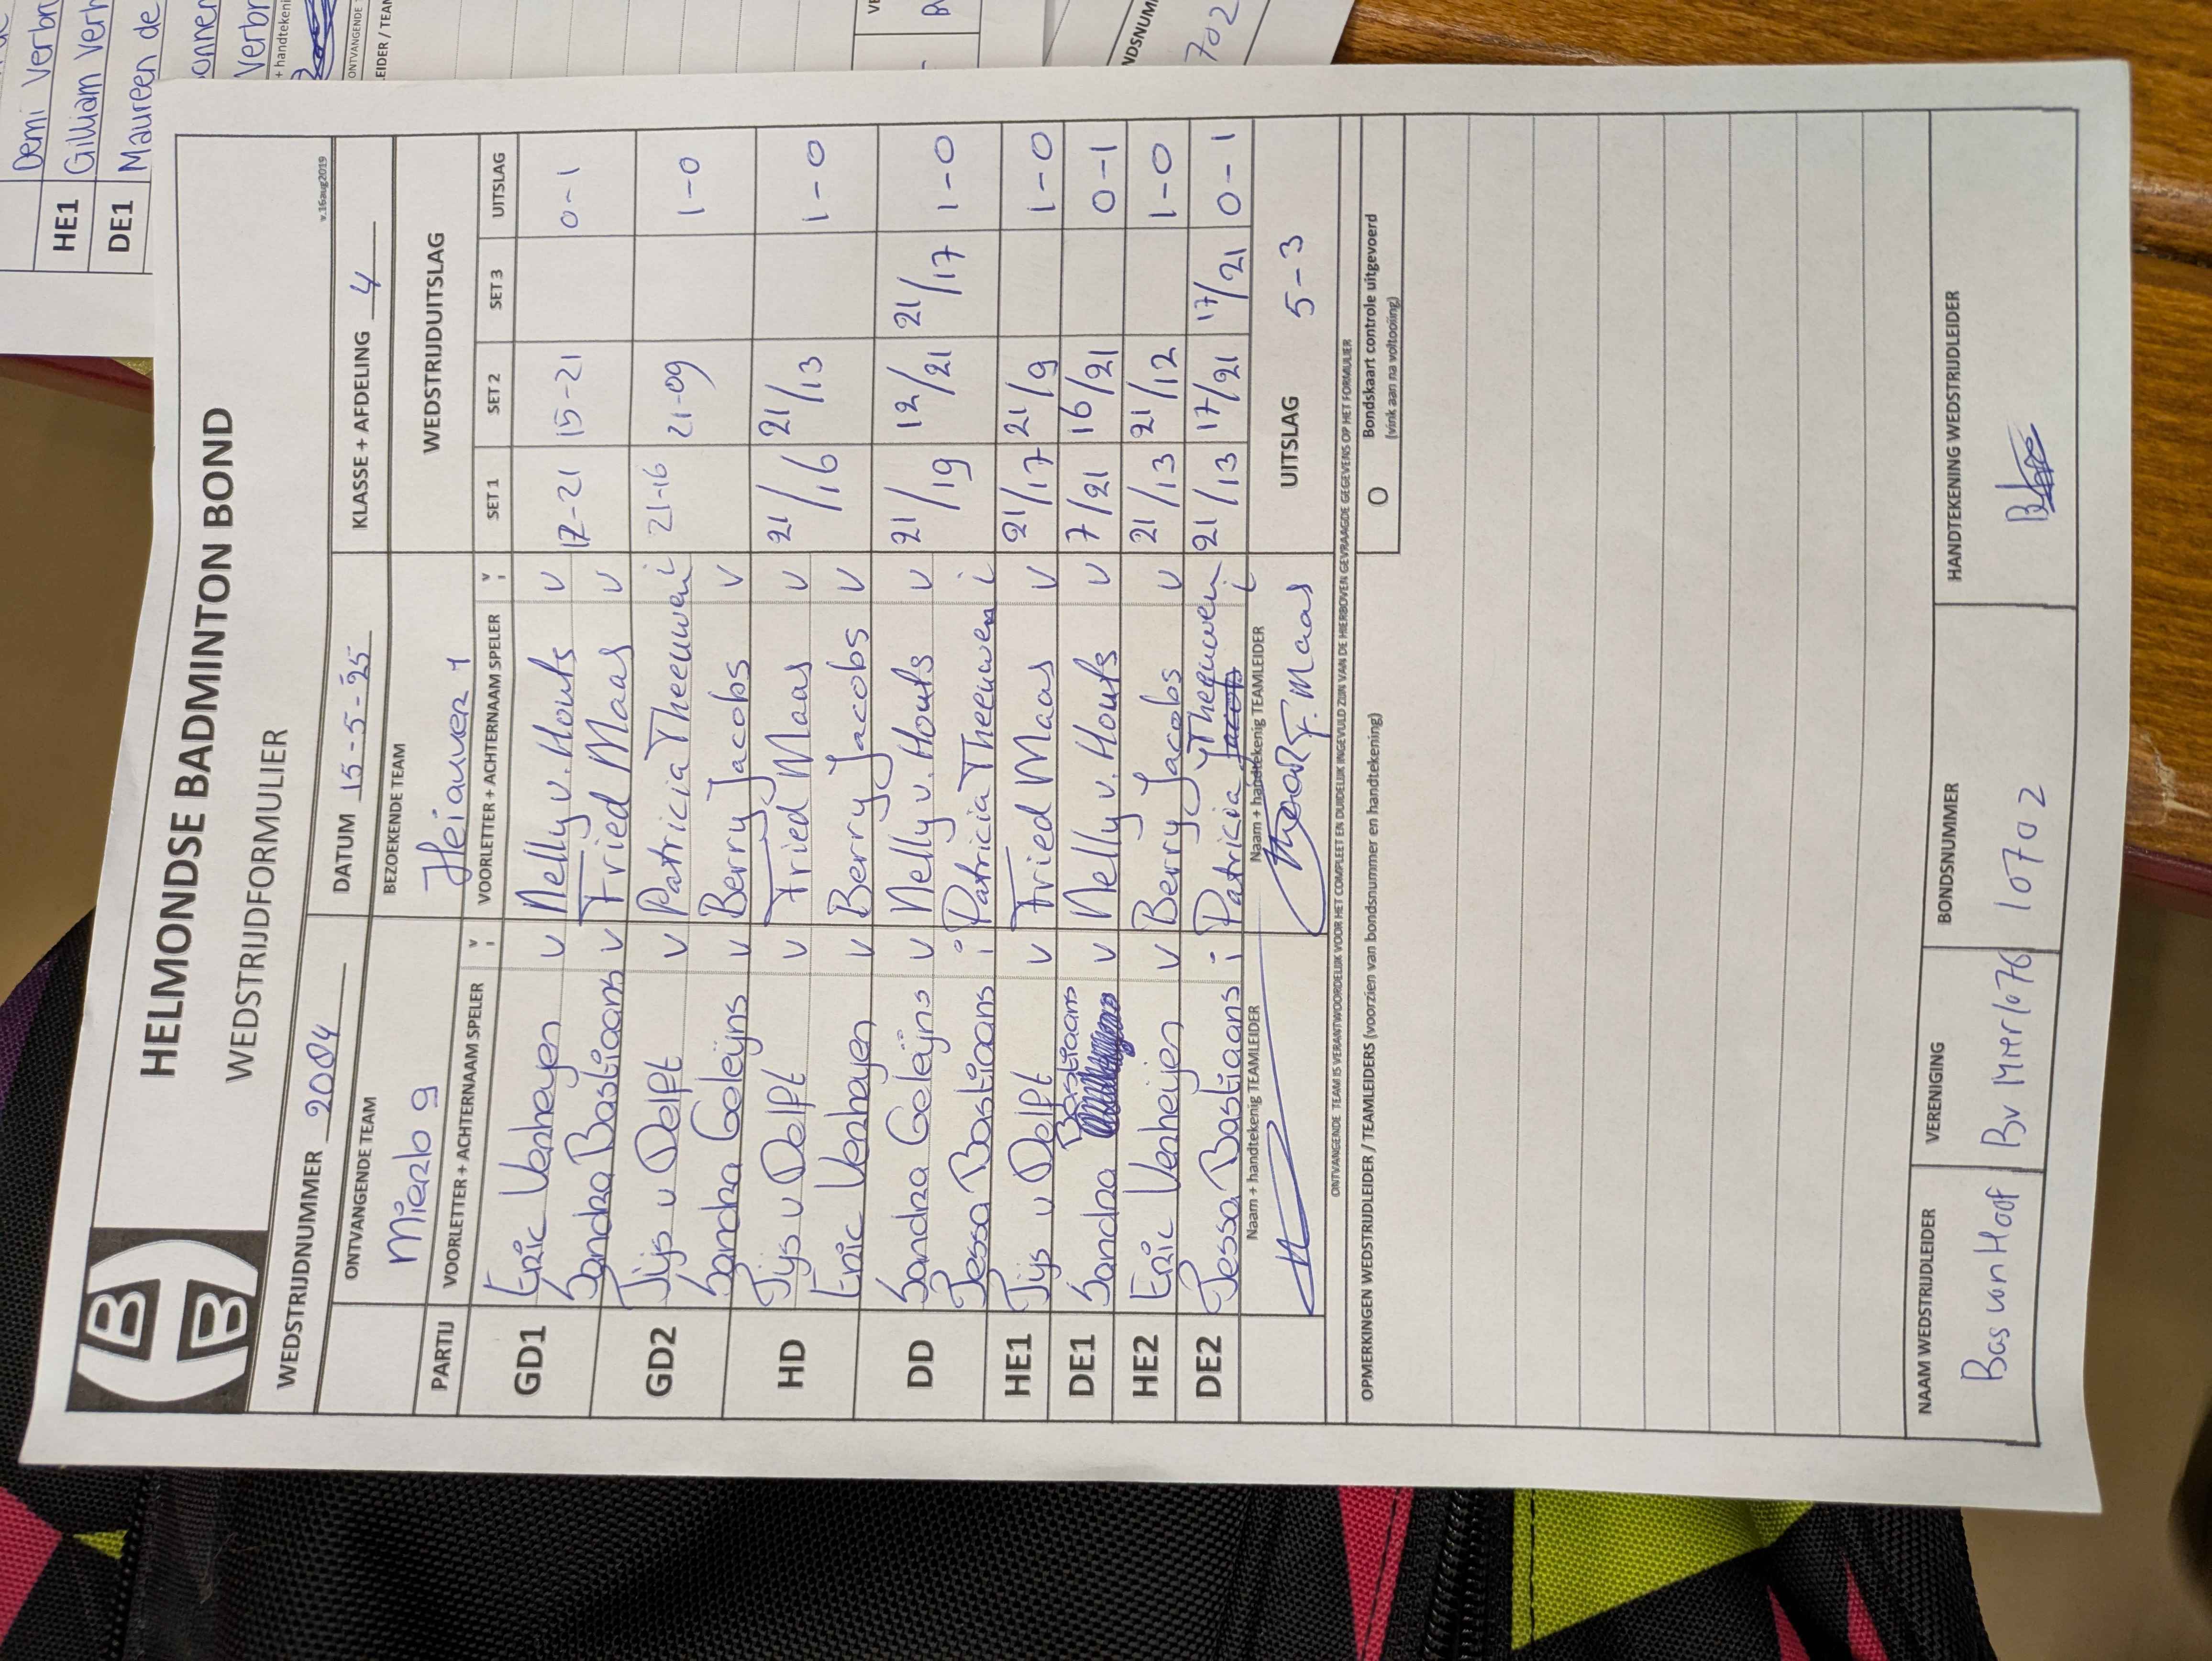 HELMONDSE BADMINTON BOND
WEDSTRIJDFORMULIER
v.16aug2019
WEDSTRIJDNUMMER 2004 DATUM 15-5-25 KLASSE + AFDELING 4
ONTVANGENDE TEAM BEZOEKENDE TEAM WEDSTRIJDUITSLAG
Mierlo 9
PARTIJ VOORLETTER + ACHTERNAAM SPELER V i VOORLETTER + ACHTERNAAM SPELER V i SET 1 SET 2 SET 3 UITSLAG
GD1 Eric Verheyen v Nelly v. Houts v 17-21 15-21 0-1
Sandra Bastiaans v Fried Maas v
GD2 Tijs v Delft v Patricia Theeuwen i 21-16 21-09 1-0
Sandra Geleijns v Berry Jacobs v
HD Tijs v Delft v Fried Maas v 21/16 21/13 1-0
Eric Verheyen v Berry Jacobs v
DD Sandra Geleijns v Nelly v. Houts v 21/19 12/21 21/17 1-0
Jessa Bastiaans i Patricia Theeuwen i
HE1 Tijs v Delft v Fried Maas v 21/17 21/9 1-0
DE1 Sandra Bastiaans v Nelly v. Houts v 7/21 16/21 0-1
HE2 Eric Verheijen v Berry Jacobs v 21/13 21/12 1-0
DE2 Jessa Bastiaans i Patricia Theeuwen i 21/13 17/21 17/21 0-1
Naam + handtekenig TEAMLEIDER Naam + handtekenig TEAMLEIDER UITSLAG 5-3
F. Maas
ONTVANGENDE TEAM IS VERANTWOORDELIJK VOOR HET COMPLEET EN DUIDELIJK INGEVULD ZIJN VAN DE HIERBOVEN GEVRAAGDE GEGEVENS OP HET FORMULIER
OPMERKINGEN WEDSTRIJDLEIDER / TEAMLEIDERS (voorzien van bondsnummer en handtekening)
O Bondskaart controle uitgevoerd
(vink aan na voltooiing)
NAAM WEDSTRIJDLEIDER VERENIGING BONDSNUMMER HANDTEKENING WEDSTRIJDLEIDER
Bas van Hoof BV Mierlo 76 10702
Demi Verbr
HE1 Gilliam Verh
DE1 Maureen de
onner
Verbr
+ handtekeni
ONTVANGENDE
EIDER / TEAM
VE
NDSNUM
702